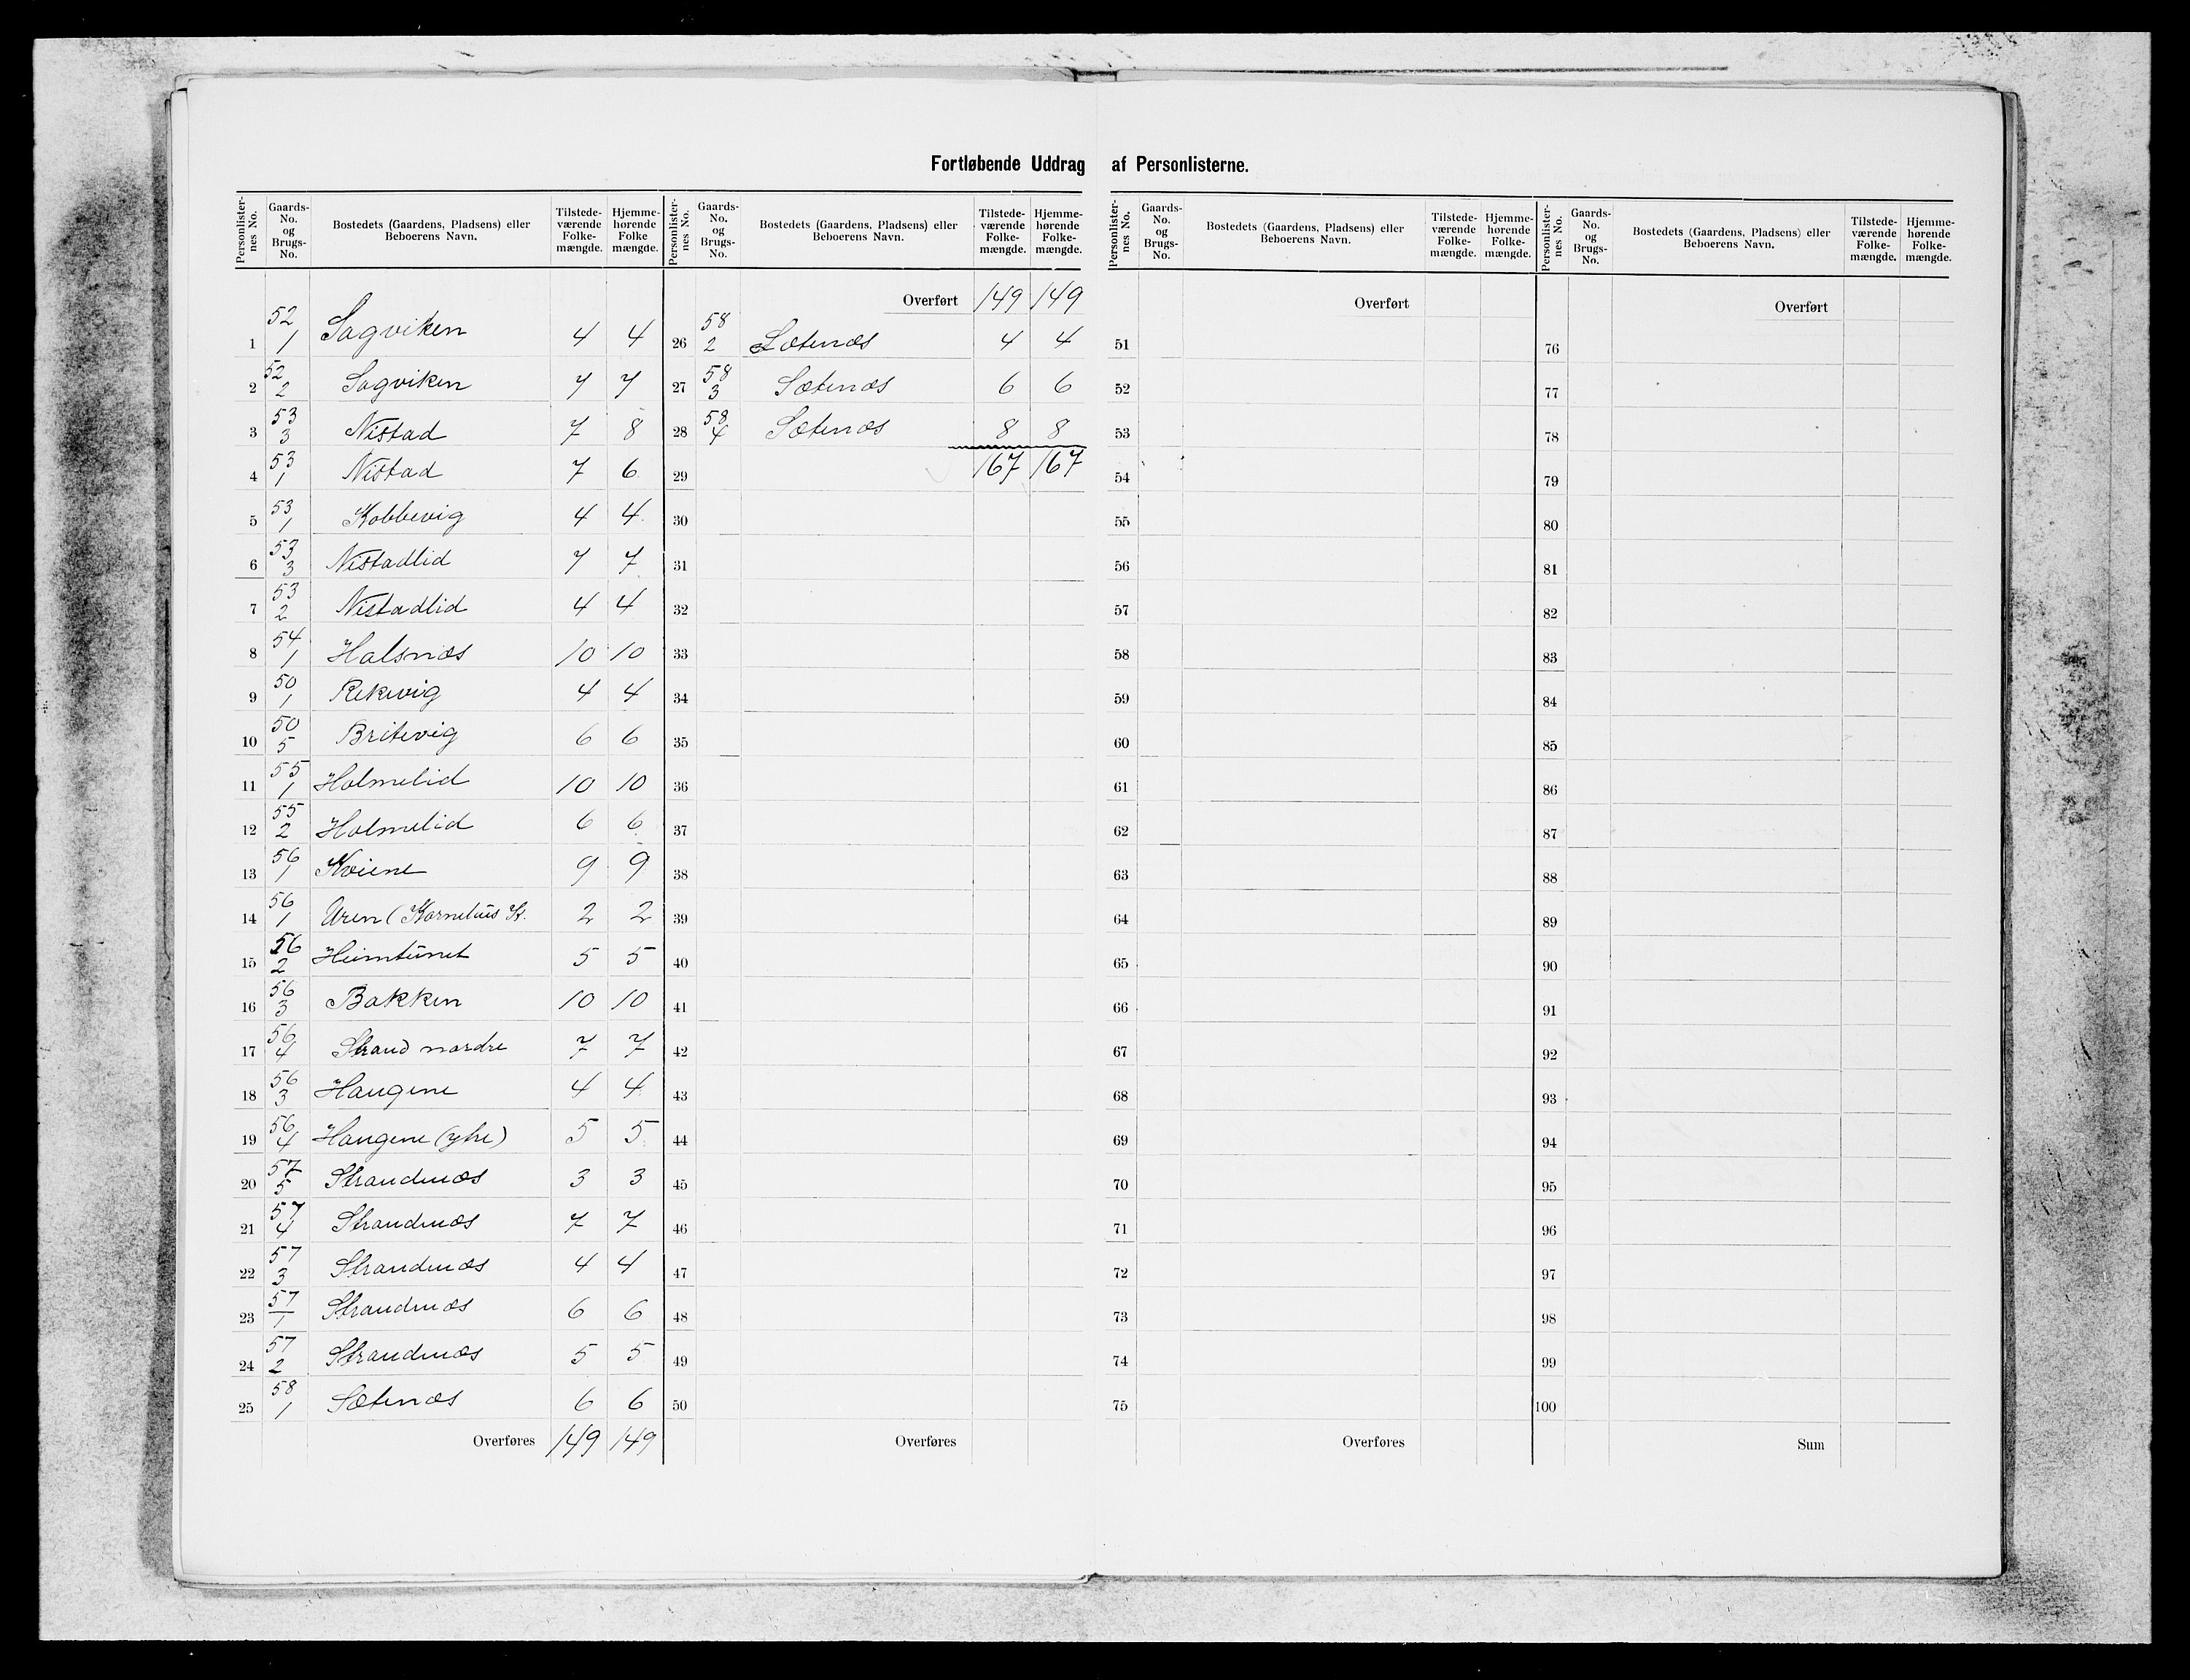 Fortløbende Uddrag af Personlisterne.
Personlister-nes No. Gaards-No. og Brugs-No. Bostedets (Gaardens, Pladsens) eller Beboerens Navn. Tilstede-værende Folke-mængde. Hjemme-hørende Folke mængde.
1 52/1 Sagviken 4 4
2 52/2 Sagviken 7 7
3 53/3 Nistad 7 8
4 53/1 Nistad 7 6
5 53/1 Kobbevig 4 4
6 53/3 Nistadlid 7 7
7 53/2 Nistadlid 4 4
8 54/1 Halsnæs 10 10
9 50/1 Rekevig 4 4
10 50/5 Britevig 6 6
11 55/1 Holmelid 10 10
12 55/2 Holmelid 6 6
13 56/1 Kviene 9 9
14 56/1 Uren (Kornelius St. 2 2
15 56/2 Heimtunet 5 5
16 56/3 Bakken 10 10
17 56/4 Strand nordre 7 7
18 56/3 Haugene 4 4
19 56/4 Haugene (ytre) 5 5
20 57/5 Strandnæs 3 3
21 57/4 Strandnæs 7 7
22 57/3 Strandnæs 4 4
23 57/1 Strandnæs 6 6
24 57/2 Strandnæs 5 5
25 58/1 Sætenæs 6 6
Overføres 149 149
Personlister-nes No. Gaards-No. og Brugs-No. Bostedets (Gaardens, Pladsens) eller Beboerens Navn. Tilstede-værende Folke-mængde. Hjemme-hørende Folke-mængde.
Overført 149 149
26 58/2 Sætenæs 4 4
27 58/3 Sætenæs 6 6
28 58/4 Sætenæs 8 8
29 167 167
30
31
32
33
34
35
36
37
38
39
40
41
42
43
44
45
46
47
48
49
50
Overføres
Personlister-nes No. Gaards-No. og Brugs-No. Bostedets (Gaardens, Pladsens) eller Beboerens Navn. Tilstede-værende Folke-mængde. Hjemme-hørende Folke-mængde.
Overført
51
52
53
54
55
56
57
58
59
60
61
62
63
64
65
66
67
68
69
70
71
72
73
74
75
Overføres
Personlister-nes No. Gaards-No. og Brugs-No. Bostedets (Gaardens, Pladsens) eller Beboerens Navn. Tilstede-værende Folke-mængde. Hjemme-hørende Folke-mængde.
Overført
76
77
78
79
80
81
82
83
84
85
86
87
88
89
90
91
92
93
94
95
96
97
98
99
100
Sum